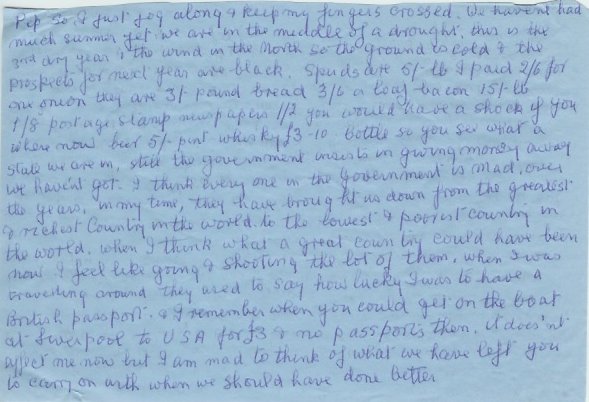 Pep So, I just jog along & keep my fingers crossed. We havent had
much summer yet. we are in the middle of a drought, this is the
3rd dry year & the wind in the North so the ground is cold & the
prospects for next year are black. Spuds are 5/- lb I paid 2/6 for
one onion they are 3/- pound bread 3/6 a loaf - bacon 15/- lb
1/8 postage stamp newspapers 1/2 you would have a shock if you
where now beer 5/- pint whisky £3-10 bottle so you see what a
state we are in, still the government insists in giving money away
we havent got. I think every one in the Government is mad, over
the years, in my time, they have brought us down from the greatest
& richest Country in the world. to the lowest & poorest country in
the world. when I think what a great country could have been
now I feel like going & shooting the lot of them, when I was
travelling around they used to say how lucky I was to have a
British passport. & I remember when you could get on the boat
at Liverpool to USA for £3 & no passports then. it does'nt
affect me now but I am mad to think of what we have left you
to carry on with when we should have done better